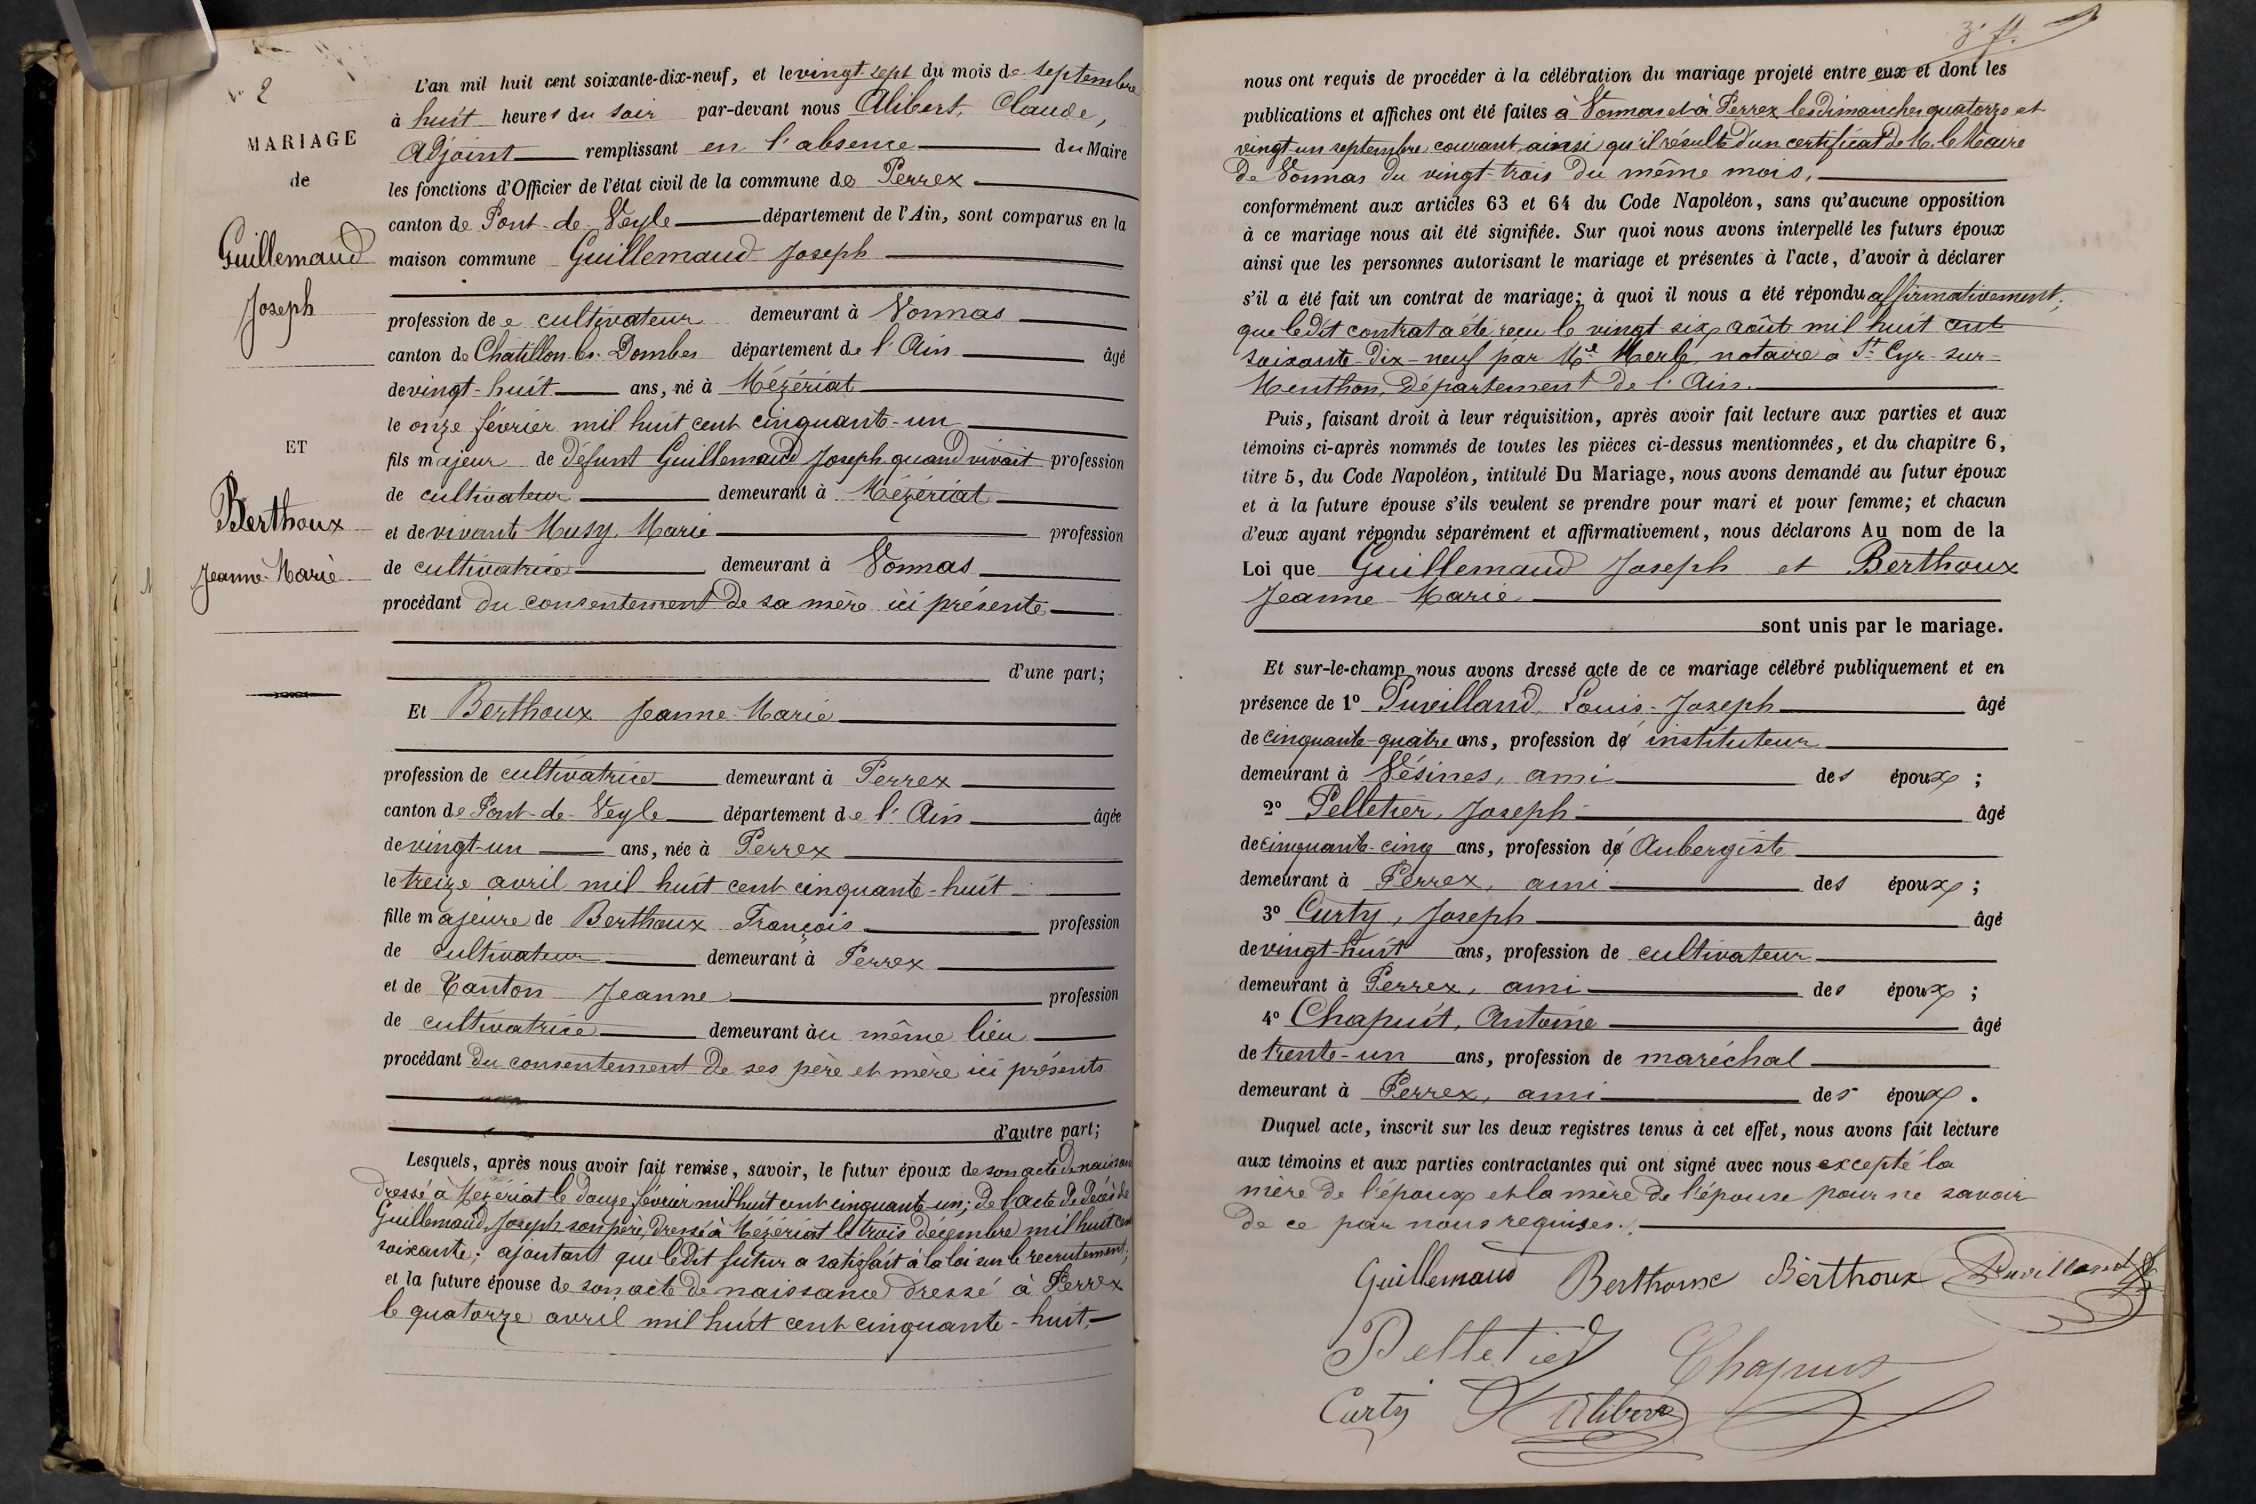 N° 2
MARIAGE
de
Guillemaud
Joseph
ET
Berthoux
Jeanne-Marie
L'an mil huit cent soixante-dix-neuf, et le vingt-sept du mois de septembre
à huit heures du soir par-devant nous Alibert, Claude,
Adjoint remplissant en l'absence du Maire
les fonctions d'Officier de l'état civil de la commune de Perrex
canton de Pont-de-Veyle département de l'Ain, sont comparus en la
maison commune Guillemaud Joseph
profession de cultivateur demeurant à Vonnas
canton de Chatillon-les-Dombes département de l'Ain âgé
de vingt-huit ans, né à Mézériat
le onze février mil huit cent cinquante-un
fils majeur de défunt Guillemaud Joseph quand vivait profession
de cultivateur demeurant à Mézériat
et de vivante Musy, Marie profession
de cultivatrice demeurant à Vonnas
procédant du consentement de sa mère ici présente
d'une part;
Et Berthoux Jeanne-Marie
profession de cultivatrice demeurant à Perrex
canton de Pont-de-Veyle département de l'Ain âgée
de vingt-un ans, née à Perrex
le treize avril mil huit cent cinquante-huit
fille majeure de Berthoux François profession
de cultivateur demeurant à Perrex
et de Tanton Jeanne profession
de cultivatrice demeurant au même lieu
procédant du consentement de ses père et mère ici présents
d'autre part;
Lesquels, après nous avoir fait remise, savoir, le futur époux de son acte de naissance
dressé à Mézériat le douze février mil huit cent cinquante-un; de l'acte de décès de
Guillemaud Joseph son père, dressé à Mézériat le trois décembre mil huit cent
soixante; ajoutant que ledit futur a satisfait à la loi sur le recrutement;
et la future épouse de son acte de naissance dressé à Perrex
le quatorze avril mil huit cent cinquante-huit,
nous ont requis de procéder à la célébration du mariage projeté entre eux et dont les
publications et affiches ont été faites à Vonnas et à Perrex les dimanches quatorze et
vingt un septembre courant, ainsi qu'il résulte d'un certificat de M. le Maire
de Vonnas du vingt-trois du même mois,
conformément aux articles 63 et 64 du Code Napoléon, sans qu'aucune opposition
à ce mariage nous ait été signifiée. Sur quoi nous avons interpellé les futurs époux
ainsi que les personnes autorisant le mariage et présentes à l'acte, d'avoir à déclarer
s'il a été fait un contrat de mariage; à quoi il nous a été répondu affirmativement,
que ledit contrat a été reçu le vingt-six août mil huit cent
soixante-dix-neuf par Me Merle, notaire à St Cyr-sur-
Menthon, département de l'Ain.
Puis, faisant droit à leur réquisition, après avoir fait lecture aux parties et aux
témoins ci-après nommés de toutes les pièces ci-dessus mentionnées, et du chapitre 6,
titre 5, du Code Napoléon, intitulé Du Mariage, nous avons demandé au futur époux
et à la future épouse s'ils veulent se prendre pour mari et pour femme; et chacun
d'eux ayant répondu séparément et affirmativement, nous déclarons Au nom de la
Loi que Guillemaud Joseph et Berthoux
Jeanne-Marie
sont unis par le mariage.
Et sur-le-champ nous avons dressé acte de ce mariage célébré publiquement et en
présence de 1° Puvilland, Louis-Joseph âgé
de cinquante-quatre ans, profession de instituteur
demeurant à Vésines, ami des époux;
2° Pelletier, Joseph âgé
de cinquante-cinq ans, profession de Aubergiste
demeurant à Perrex, ami des époux;
3° Curty, Joseph âgé
de vingt-huit ans, profession de cultivateur
demeurant à Perrex, ami des époux;
4° Chapuit, Antoine âgé
de trente-un ans, profession de maréchal
demeurant à Perrex, ami des époux.
Duquel acte, inscrit sur les deux registres tenus à cet effet, nous avons fait lecture
aux témoins et aux parties contractantes qui ont signé avec nous excepté la
mère de l'époux et la mère de l'épouse pour ne savoir
de ce par nous requises.
Guillemaud Berthoux Berthoux Puvilland
Pelletier Chapuis
Curty Alibert